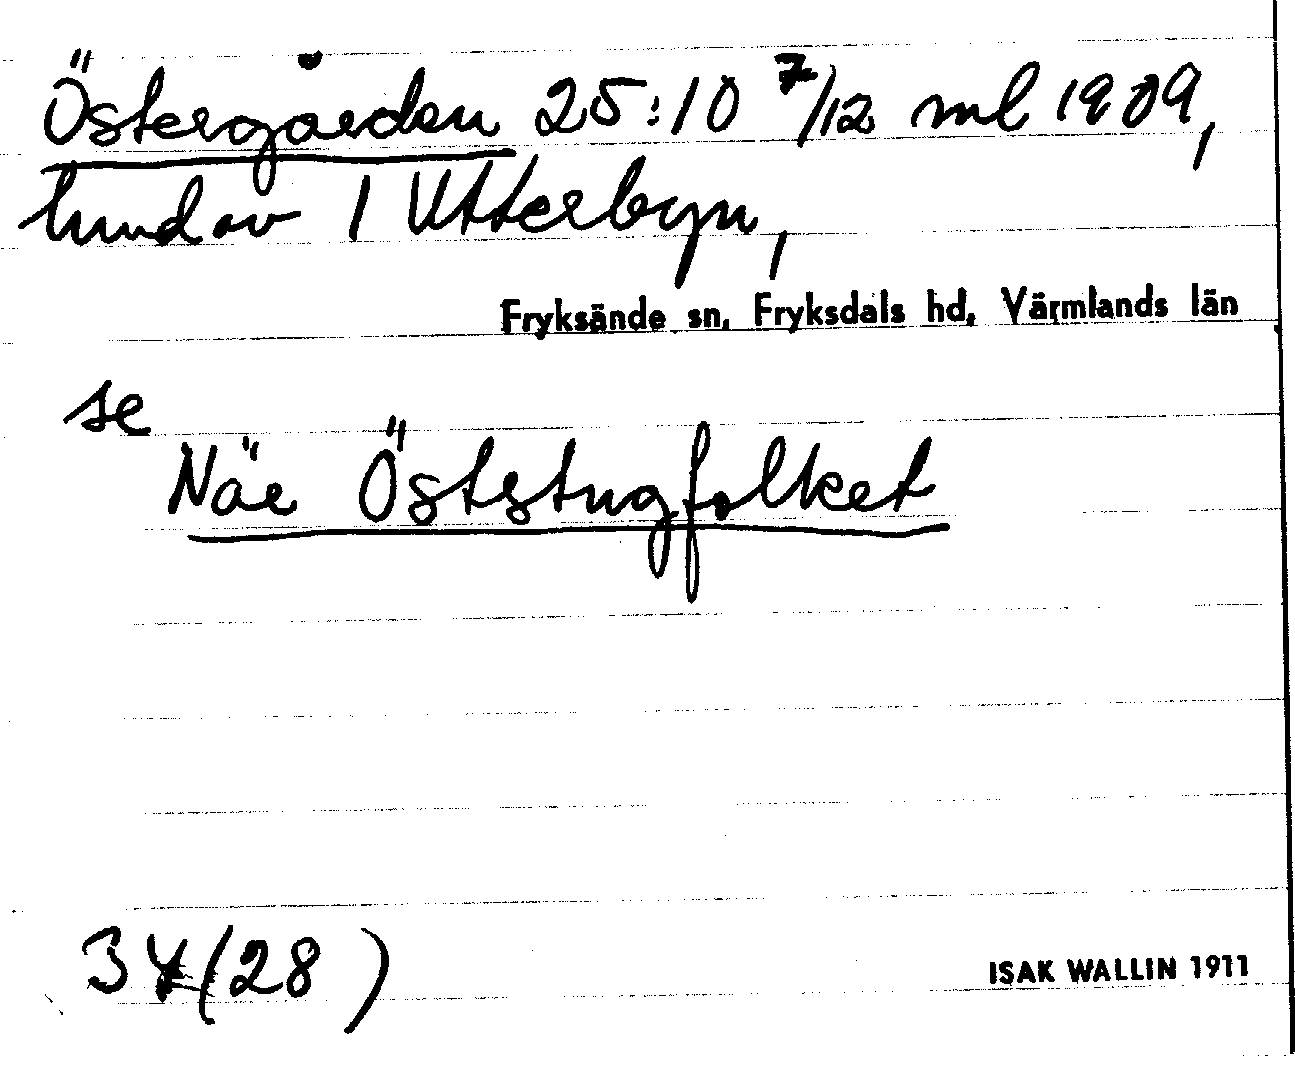 Östergården 25:10 7/12 ml 1909,
hundav 1 Utterbyn,
Fryksände sn, Fryksdals hd, Värmlands län
se
När Öststugfolket
34 (28)
ISAK WALLIN 1911